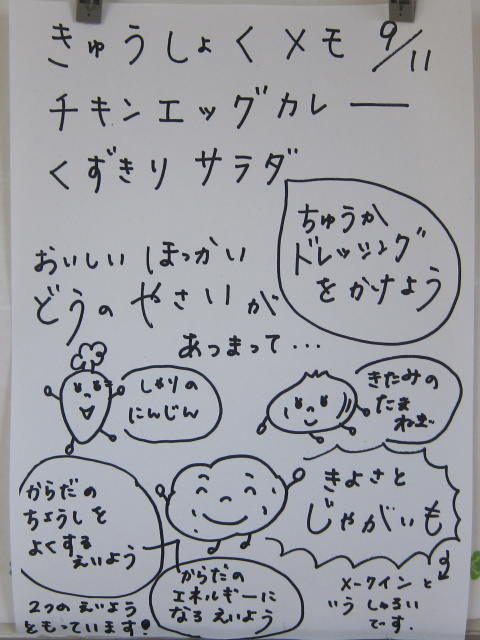 きゅうしょくメモ 9/11
チキンエッグカレー
くずきり サラダ
ちゅうか
ドレッシング
をかけよう
おいしい ほっかい
どうの やさいが
あつまって・・・
しゃりの
にんじん
きたみの
たま
ねぎ
きよさと
じゃがいも
からだの
ちょうしを
よくする
えいよう
からだの
エネルギーに
なる えいよう
メークインと
いう しゅるい
です.
2つの えいよう
をもっています!